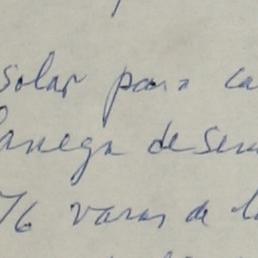 solar para ca
fanega de sem
76 varas de l